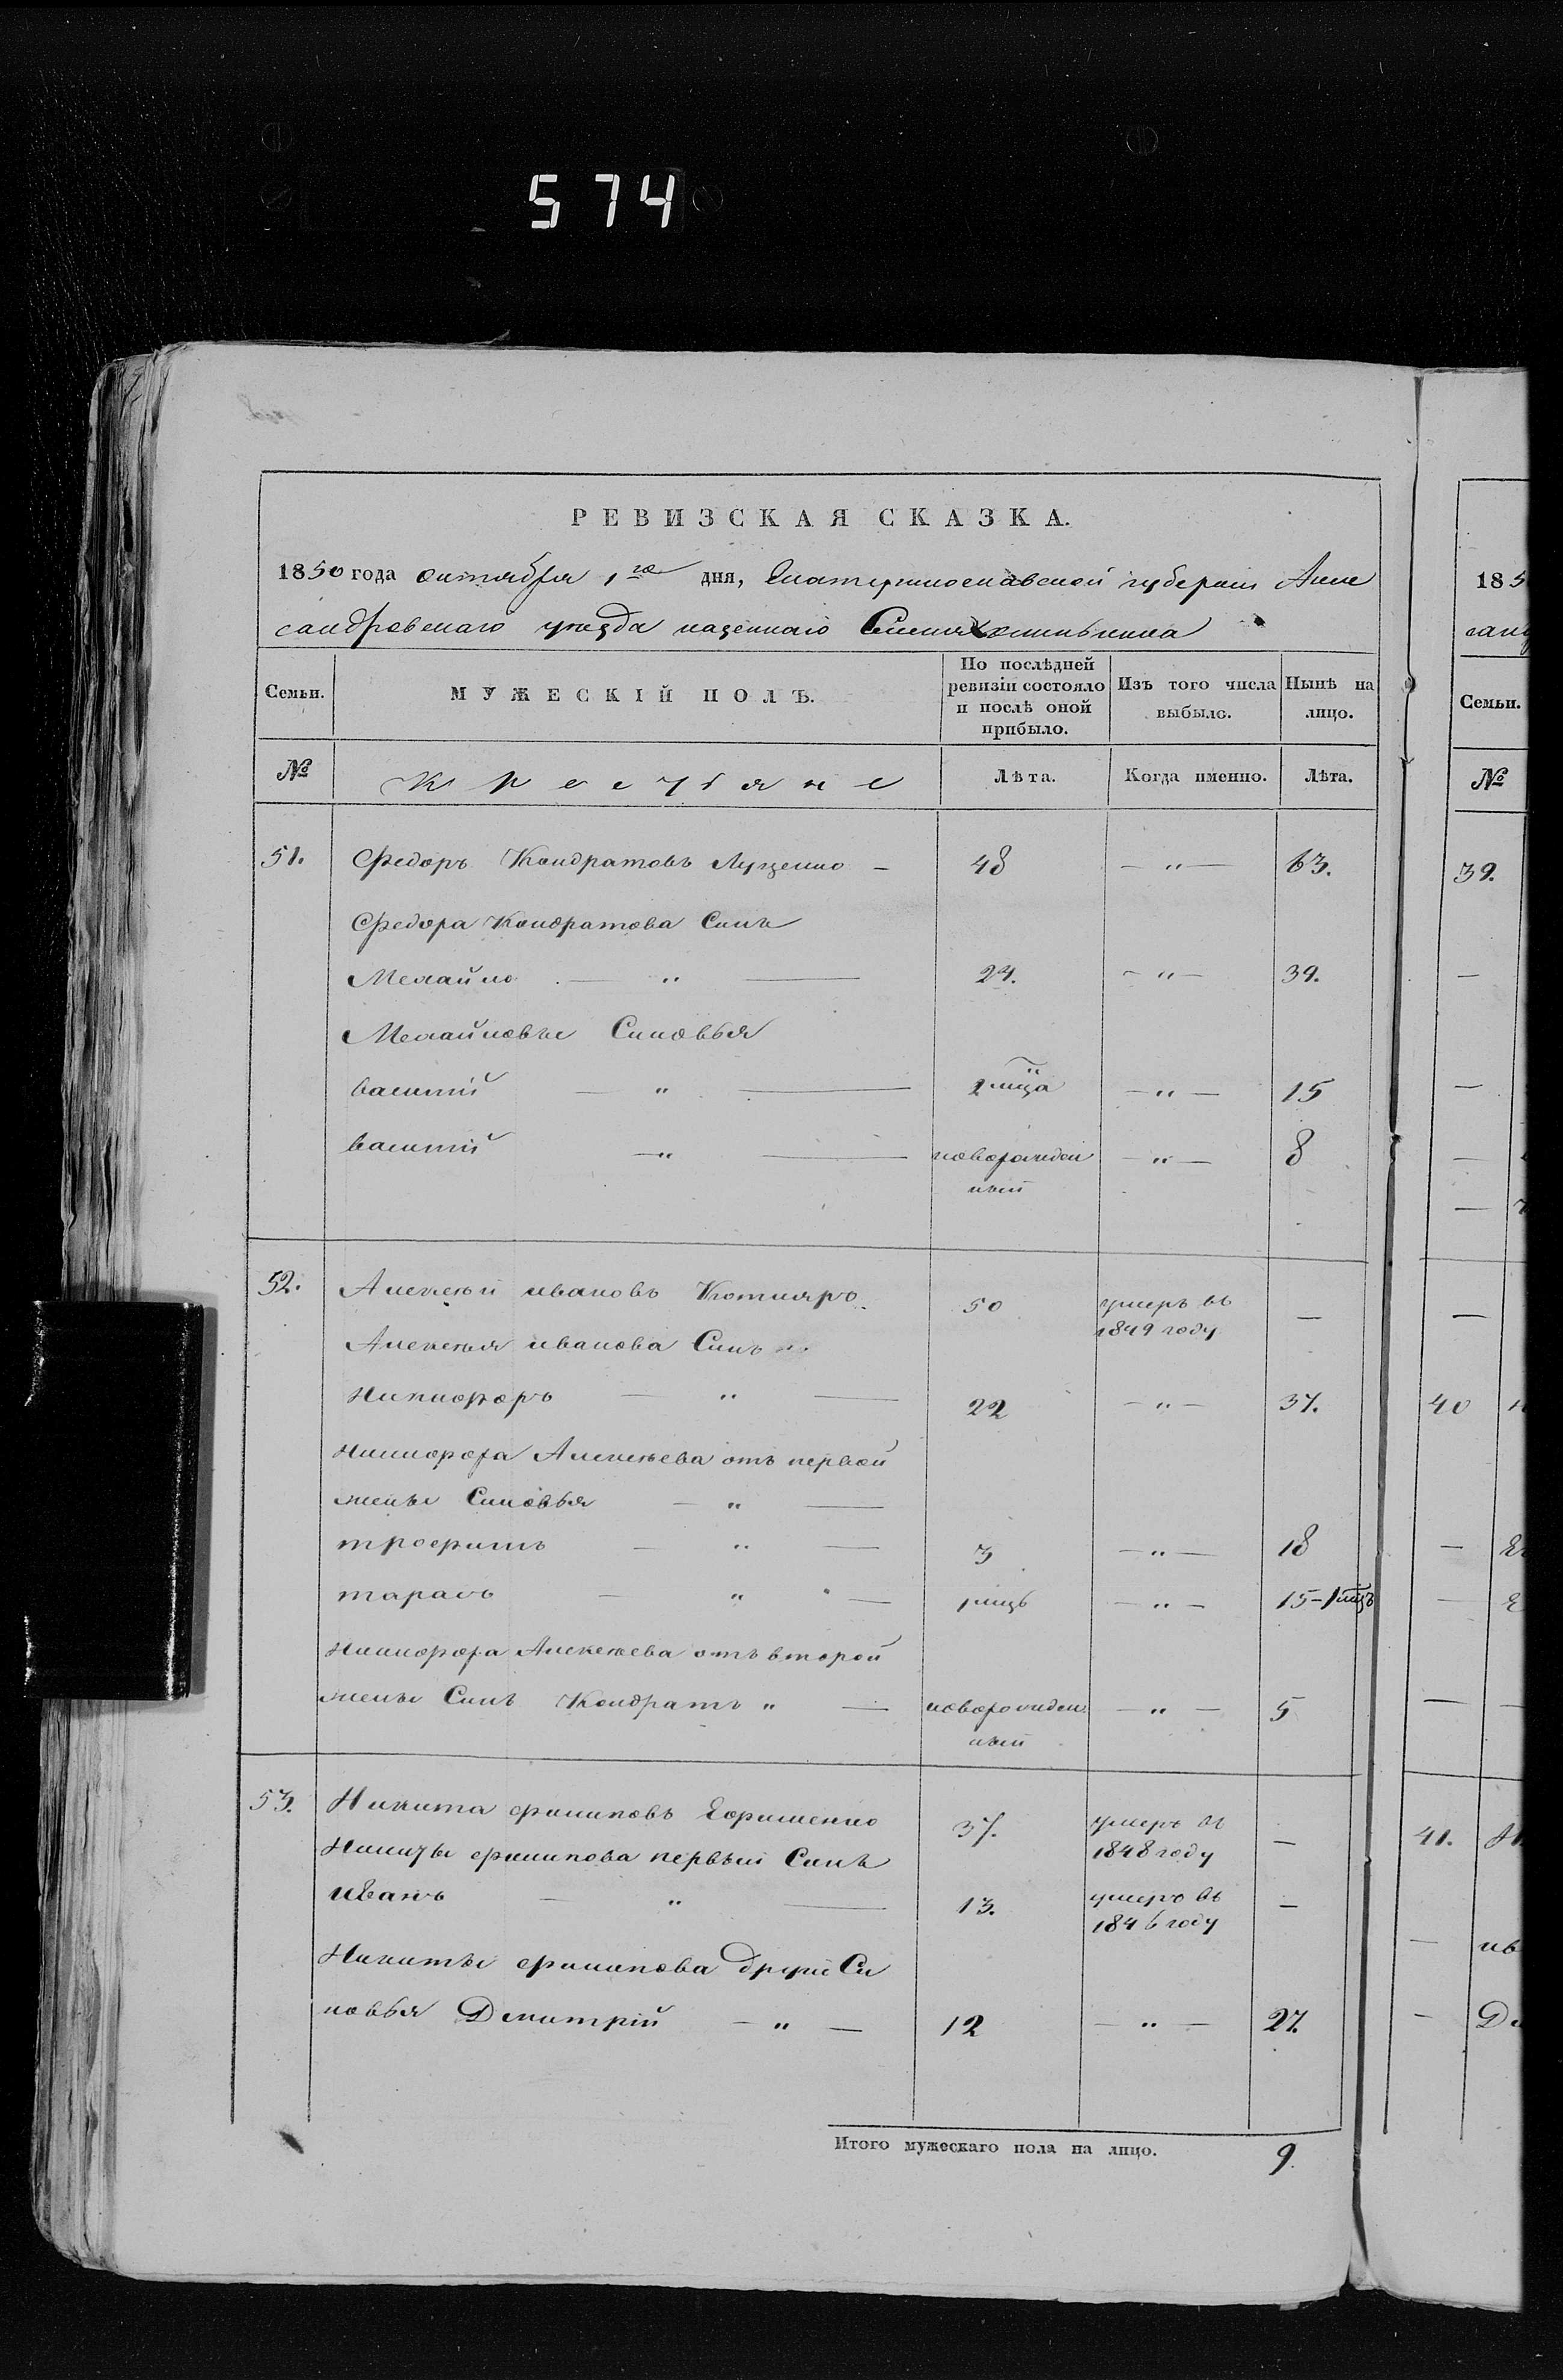 574
РЕВИЗСКАЯ СКАЗКА.
1850 года октября 1го дня, Екатеринославской губернии Алек
сандровскаго уезда казеннаго Села
Семьи. МУЖЕСКІЙ ПОЛЪ. По послѣдней ревизіи состояло и послѣ оной прибыло. Изъ того числа выбыло. Нынѣ на лицо.
№ Крестьяне Лѣта. Когда именно. Лѣта.
51. Федоръ Кондратовъ Луценко — 48 — " — 63.
Федора Кондратова Синъ
Мехайло — " — 24. — " — 39.
Мехайловы Синовья
василий — " — 2 мца — " — 15
василий — " — новорожден — " — 8
ный
52. Алексей ивановъ Котляръ 50 умеръ въ —
1849 году
Алексея иванова Синъ
Никифоръ — " — 22 — " — 37.
Никифора Алексеева отъ первой
жены Синовья — " —
трофимъ — " — 3 — " — 18
тарасъ — " — 1 мцъ — " — 15 - 1 мцъ
Никифора Алексеева отъ второй
жены Синъ Кондратъ " — новорожден — " — 5
ный
53. Никита филиповъ Ефименко 37. умеръ въ —
1848 году
Никиты филипова первый Синъ
иванъ — " — 13. умеръ въ —
1846 году
Никиты филипова другие Си
новья Дмитрій — " — 12 — " — 27.
Итого мужескаго пола на лицо. 9.
185
санд
Семьи.
№
39.
40
41.